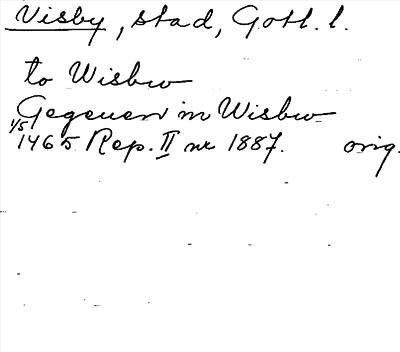 Visby, stad, Gotl. l.
to Wisbw
Gegeuen in Wisbw
1/5 1465 Rep. II nr 1887. orig.